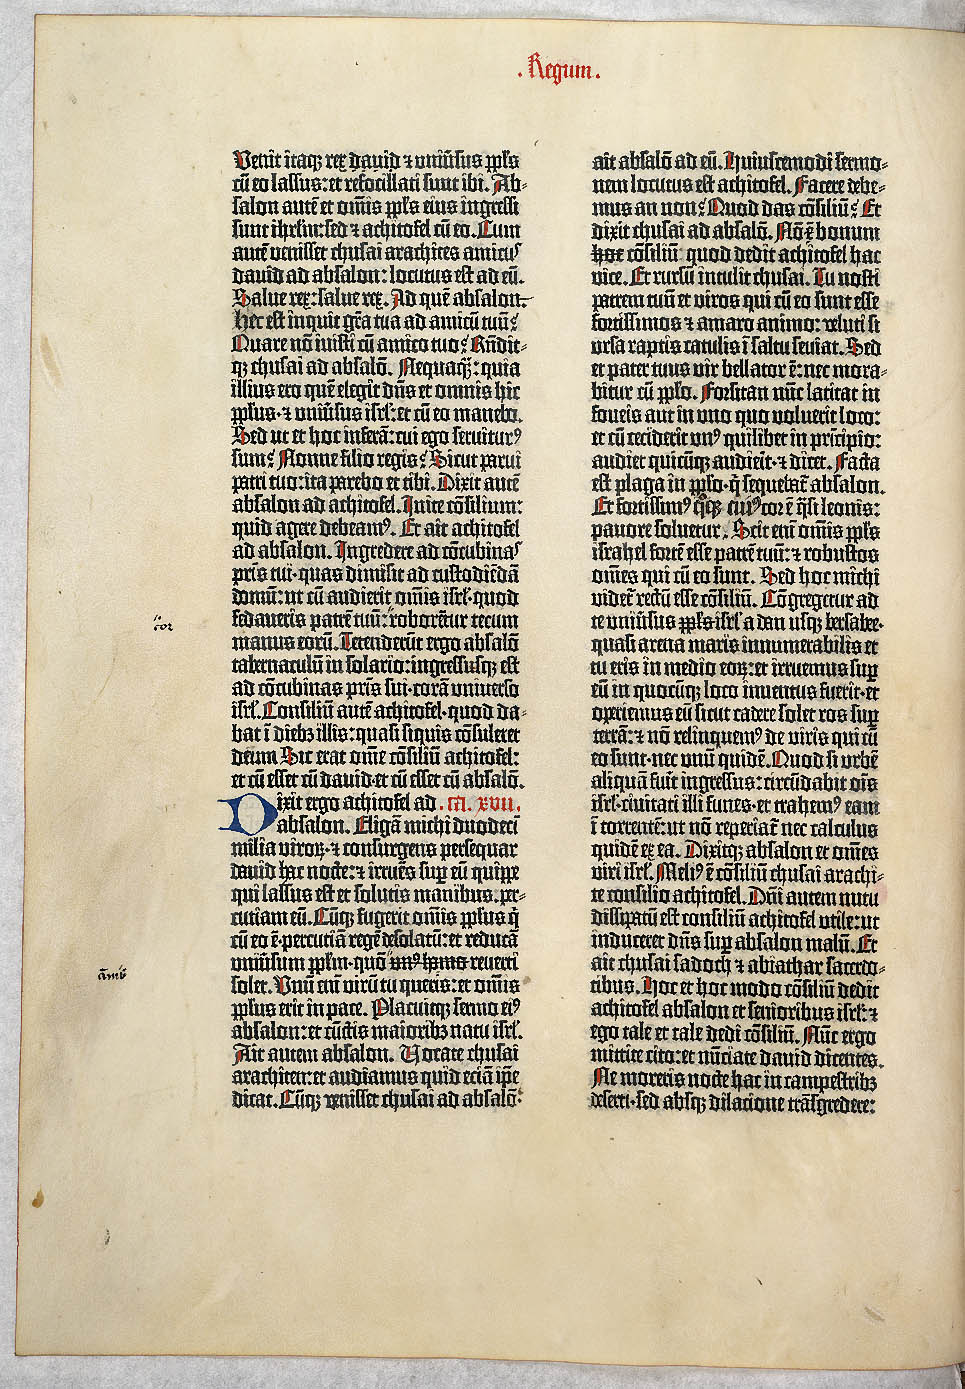 . Regum .
Venit itaqꝫ rex dauid ⁊ vniũsus ppl's
cũ eo lassus: et refocillati sunt ibi. Ab-
salon autẽ et om̃is ppl's eius ingressi
sunt ihrl'm: sed ⁊ achitofel cũ eo. Cum
autẽ venisset chusai arachites amicuˢ
dauid ad absalon: locutus est ad eũ.
Salue rex: salue rex. Ad quẽ absalon.
Hec est inquit gr̃a tua ad amicũ tuũ?
Quare nõ iuisti cũ amico tuo? Rñdit-
qꝫ chusai ad absalõ. Nequaq̃ꝫ: quia
illius ero quẽ elegit dñs et omnis hic
pplus· ⁊ vniũsus isrl': et cũ eo manebo.
Sed ut et hoc inferã: cui ego seruiturꝰ
sum? Nonne filio regis? Sicut parui
patri tuo: ita parebo et tibi. Dixit autẽ
absalon ad achitofel. Inite cõsilium:
quid agere debeamꝰ. Et ait achitofel
ad absalon. Ingredere ad cõcubinaˢ
pr̃is tui· quas dimisit ad custodiẽdã
domũ: ut cũ audierit om̃is isrl'· quod
fedaueris patrẽ tuũ: roborẽtur tecum
manus eorũ. Tetenderũt ergo absalõ
tabernaculũ in solario: ingressusqꝫ est
ad cõcubinas pr̃is sui· corã vniuerso
isrl'. Consiliũ autẽ achitofel· quod da-
bat ĩ diebꝫ illis: quasi siquis cõsuleret
deum Sic erat om̃e cõsiliũ achitofel:
et cũ esset cũ dauid· et cũ esset cũ absalõ.
Dixit ergo achitofel ad . ca. xvii.
absalon. Eligã michi duodecĩ
milia viroꝝ· ⁊ consurgens persequar
dauid hac nocte: ⁊ irruẽs sup eũ quippe
qui lassus est et solutis manibus· per-
cutiam eũ. Cũqꝫ fugerit om̃is pplus q̃
cũ eo ẽ· percutiã regẽ desolatũ: et reducã
vniũsum pplm· quõ vnꝰ homo reuerti
solet. Vnũ eni virũ tu queris: et om̃is
pplus erit in pace. Placuitqꝫ sermo eiꝰ
absalon: et cũctis maioribꝫ natu isrl'.
Ait autem absalon. Vocate chusai
arachiten: et audiamus quid eciã ip̃e
dicat. Cũqꝫ venisset chusai ad absalõ:
cor
ait absalõ ad eũ. Huiuscemodi sermo-
nem locutus est achitofel. Facere debe-
mus an non? Quod das cõsiliũ? Et
dixit chusai ad absalõ. Nõ ẽ bonum
hoc cõsiliũ quod dedit achitofel hac
vice. Et rursũ intulit chusai. Tu nosti
patrem tuũ et viros qui cũ eo sunt esse
fortissimos ⁊ amaro animo: veluti si
vrsa raptis catulis ĩ saltu seuiat. Sed
et pater tuus vir bellator ẽ: nec mora-
bitur cũ pplo. Forsitan nũc latitat in
foueis aut in vno quo voluerit loco:
et cũ ceciderit vnꝰ quilibet in prĩcipio:
audiet quicũqꝫ audierit· ⁊ dicet. Facta
est plaga in pplo· q̃ sequebat̃ absalon.
Et fortissimꝰ q̃sqꝫ cuiꝰ cor ẽ q̃si leonis:
pauore soluetur. Scit eni om̃is ppl's
israhel fortẽ esse patrẽ tuũ: ⁊ robustos
om̃es qui cũ eo sunt. Sed hoc michi
videt̃ rectũ esse cõsiliũ. Cõgregetur ad
te vniũsus ppl's isrl' a dan usqꝫ bersabee·
quasi arena maris innumerabilis et
tu eris in medio eoꝝ: et irruemus sup
eũ in quocũqꝫ loco inuentus fuerit· et
operiemus eũ sicut cadere solet ros sup
terrã: ⁊ nõ relinquemꝰ de viris qui cũ
eo sunt· nec vnũ quidẽ. Quod si vrbẽ
aliquã fuit ingressus: circũdabit ois
isrl' ciuitati illi funes· et trahemꝰ eam
ĩ torrentẽ: ut nõ reperiat̃ nec calculus
quidẽ ex ea. Dixitqꝫ absalon et om̃es
viri isrl'. Meliꝰ ẽ cõsiliũ chusai arachi-
te consilio achitofel. Dñi autem nutu
dissipatũ est consiliũ achitofel vtile: ut
induceret dñs sup absalon malũ. Et
ait chusai sadoch ⁊ abiathar sacerdo-
tibus. Hoc et hoc modo cõsiliũ dedit
achitofel absalon et senioribus isrl': ⁊
ego tale et tale dedi cõsiliũ. Nũc ergo
mittite cito: et nũciate dauid dicentes.
Ne moreris nocte hac in campestribꝫ
deserti· sed absqꝫ dilacione trãsgredere: